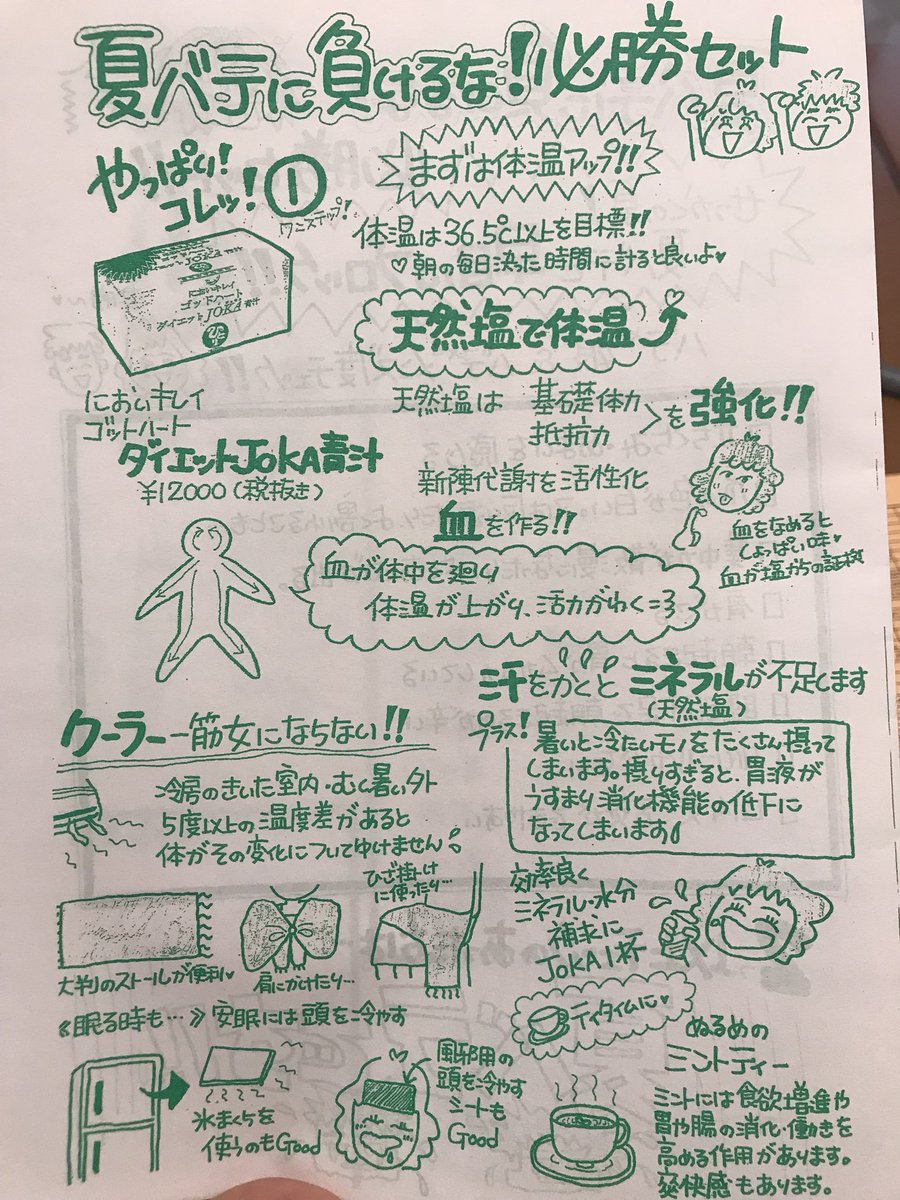 夏バテに負けるな!必勝セット
やっぱり!
コレッ!①
ワンステップ!
まずは体温アップ!!
体温は36.5℃以上を目標!!
♡朝の毎日決った時間に計ると良いよ♥
JOKA青汁
においキレイ
ゴッドハート
ダイエットJOKA青汁
天然塩で体温⤴
においキレイ
ゴットハート
ダイエットJOKA青汁
¥12000(税抜き)
天然塩は 基礎体力
抵抗力
を強化!!
新陳代謝を活性化
血を作る!!
血をなめると
しょっぱい味♥
血が塩からの証拠
血が体中を廻り
体温が上がり、活力がわく=3
汗をかくと ミネラルが不足します
(天然塩)
クーラー一筋女にならない!!
冷房のきいた室内・むし暑い外
5度以上の温度差があると
体がその変化についてゆけません
プラス!
暑いと冷たいモノをたくさん摂って
しまいます。摂りすぎると、胃液が
うすまり消化機能の低下に
なってしまいます
大判のストールが便利♥
肩にかけたり…
ひざ掛けに
使ったり…
効率良く
ミネラル・水分
補求に
JOKA1杯
《眠る時も…》安眠には頭を冷やす
氷まくらを
使うのもGood
風邪用の
頭を冷やす
シートも
Good
ティタイムに♥
ぬるめの
ミントティー
ミントには食欲増進や
胃や腸の消化・働きを
高める作用があります。
爽快感もあります。